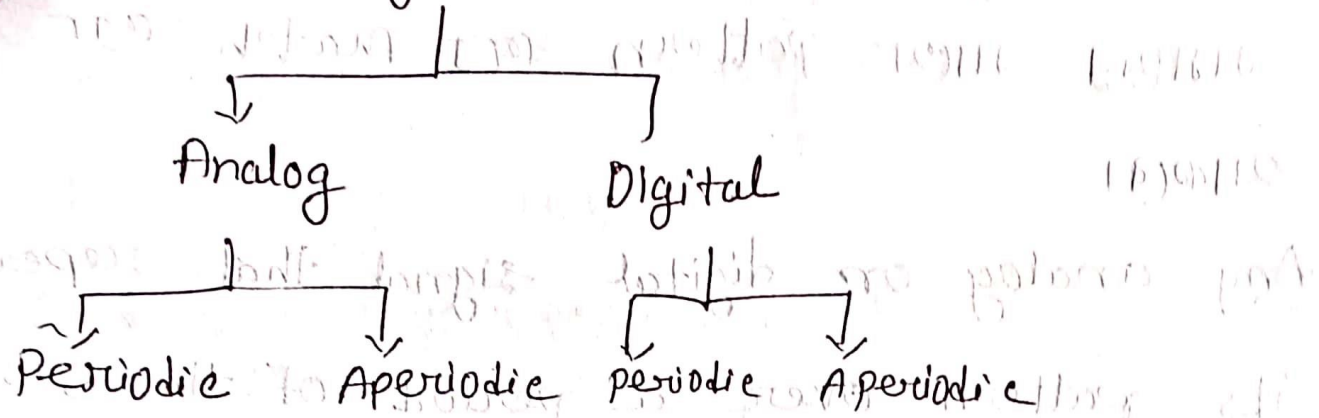 Analog Digital
Periodic Aperiodic periodic Aperiodic